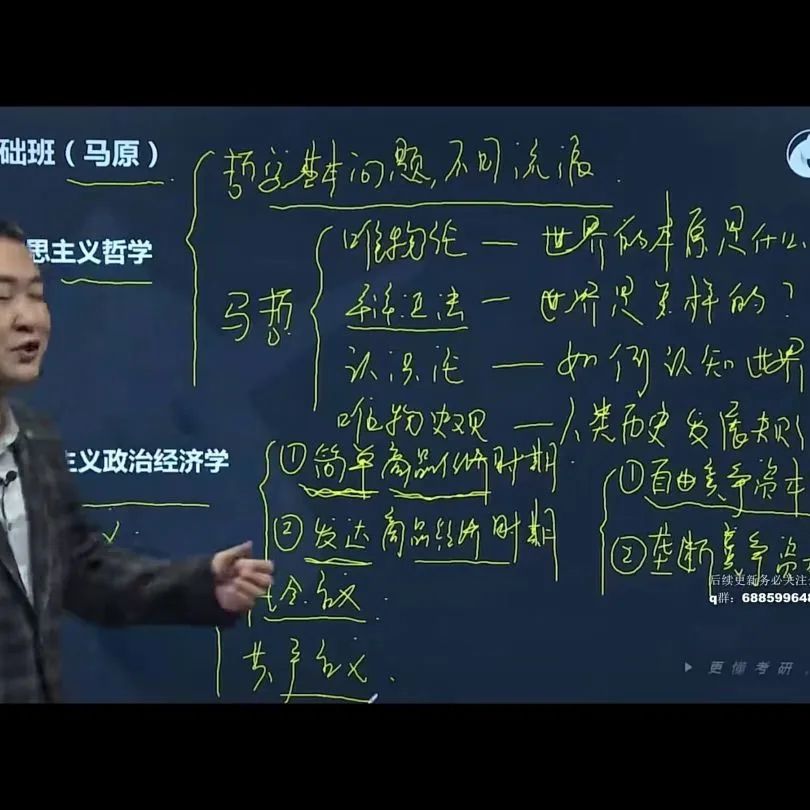 础班（马原）
哲学基本问题,不同流派.
思主义哲学
马哲
唯物论 — 世界的本原是什么
辩证法 — 世界是怎样的?
认识论 — 如何认知世界
唯物史观 — 人类历史发展规律
主义政治经济学
①简单商品经济时期
②发达商品经济时期
①自由竞争资本
②垄断竞争资
社会主义.
共产主义.
后续更新务必关注
q群：68859964
更懂考研